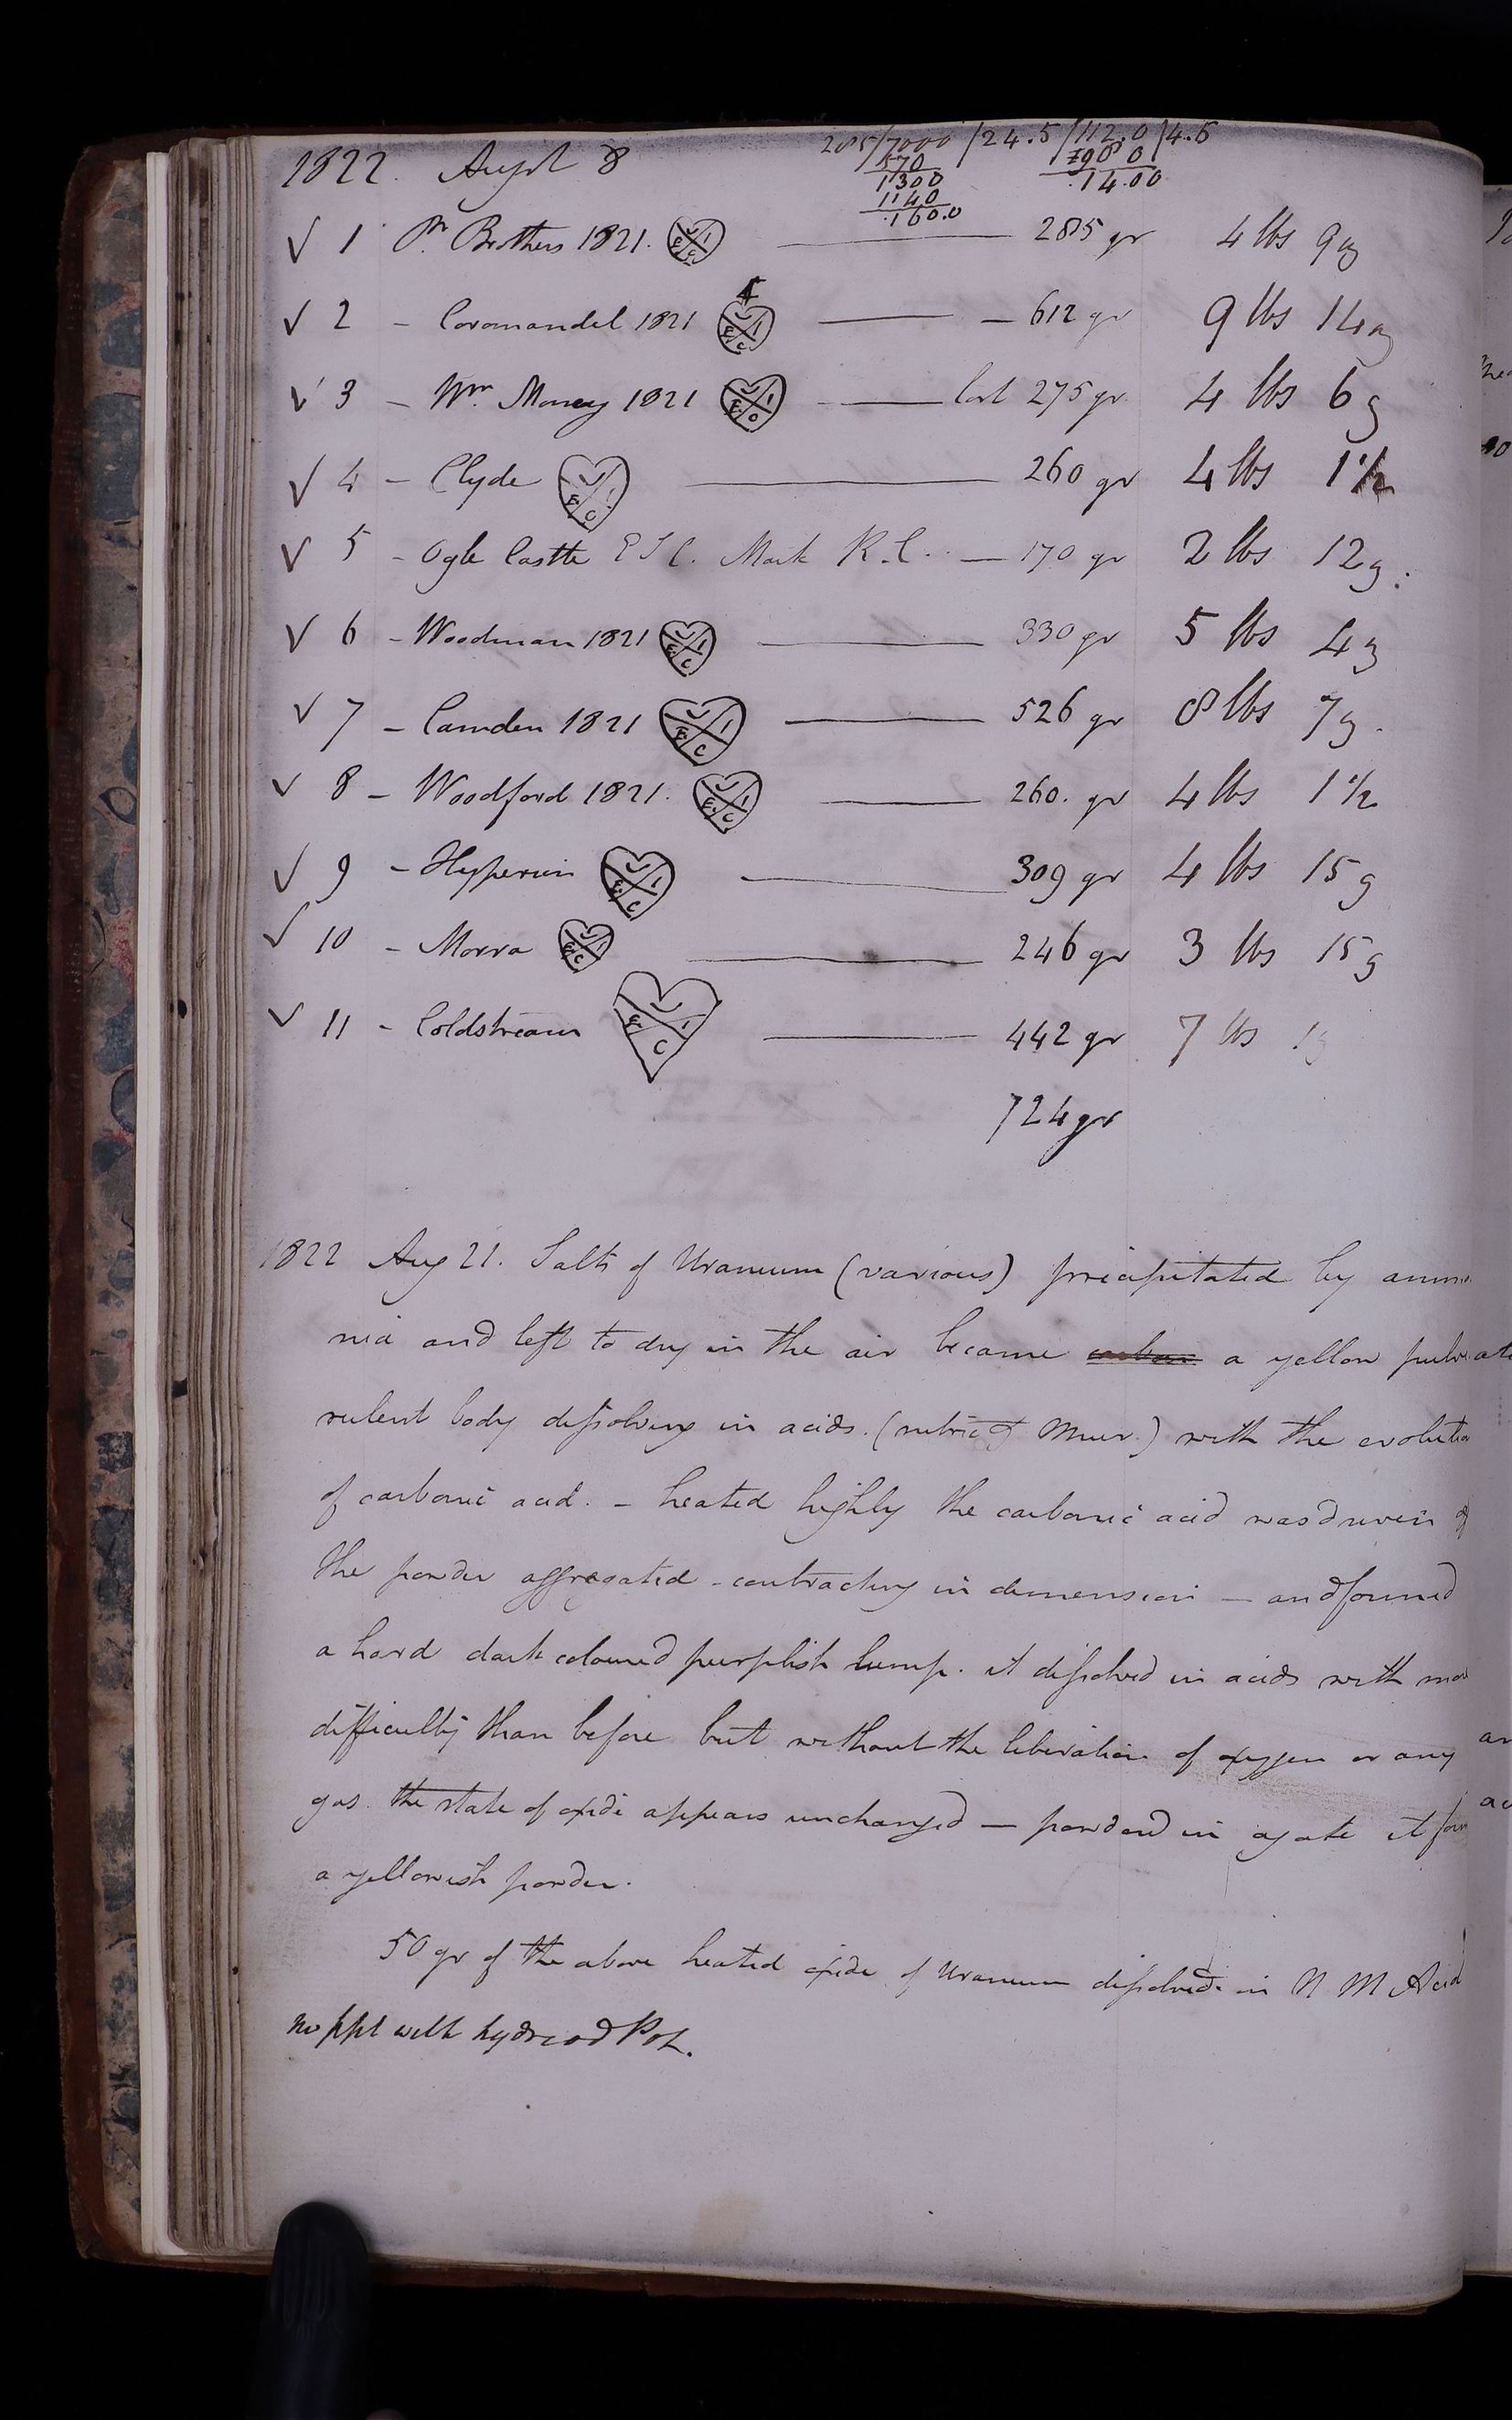 285/7000/24.5/112.0/4.5
570 98 0
1300 .14.00
1140
.160.0
1822. Augst 8
√ 1 Pr. Brothers 1821. V E I C — 285 gr 4 lbs 9 oz
√ 2 – Coromandel 1821 4 V E I C — 612 gr 9 lbs 14 oz
√ 3 – Wm. Money 1821 V E I C — lost 275 gr 4 lbs 6 oz
√ 4 – Clyde V E I C — 260 gr 4 lbs 1 1/2
√ 5 – Ogle Castle E I C. Mark R.C. — 170 gr 2 lbs 12 oz.
√ 6 – Woodman 1821 V E I C — 330 gr 5 lbs 4 oz
√ 7 – Camden 1821 V E I C — 526 gr 8 lbs 7 oz.
√ 8 – Woodford 1821. V E I C — 260. gr 4 lbs 1 1/2
√ 9 – Hyperion V E I C — 309 gr 4 lbs 15 oz
√ 10 – Morra V E I C — 246 gr 3 lbs 15 oz
√ 11 – Coldstream V E I C — 442 gr 7 lbs 1 oz
724 gr
1822 Aug 21. Salts of Uranium (various) precipitated by ammo
nia and left to dry in the air became a yellow pulve
rulent body dissolving in acids. (nitric & Mur.) with the evolutio
of carbonic acid. – heated highly the carbonic acid was driven of
the powder aggregated – contracting in dimension – and formed
a hard dark coloured purplish lump. it dissolved in acids with mor
difficulty than before but without the liberation of oxygen or any
gas the state of oxide appears unchanged – powdered in agate it for
a yellowish powder.
50 gr of the above heated oxide of Uranium dissolved in N M Acid
no ppt with hydriod Pot.